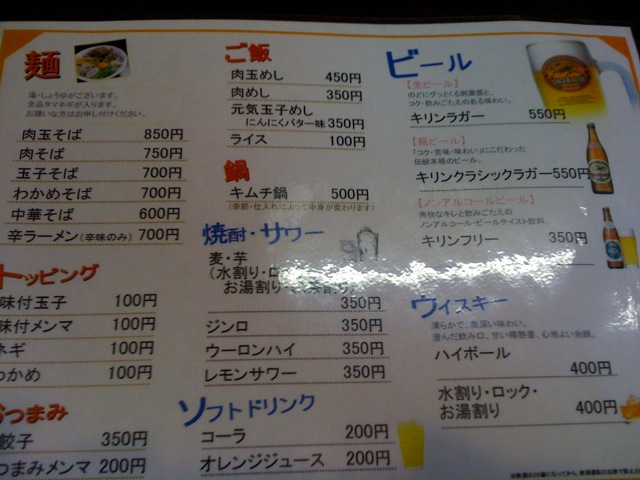 麺
塩・しょうゆがございます。
全品タマネギが入ります。
お嫌いな方はお申し付けください。
肉玉そば 850円
肉そば 750円
玉子そば 700円
わかめそば 700円
中華そば 600円
辛ラーメン(辛味のみ) 700円
トッピング
味付玉子 100円
味付メンマ 100円
ネギ 100円
わかめ 100円
おつまみ
餃子 350円
つまみメンマ 200円
ご飯
肉玉めし 450円
肉めし 350円
元気玉子めし
にんにくバター味 350円
ライス 100円
鍋
キムチ鍋 500円
(季節・仕入れによって中身が変わります)
焼酎・サワー
麦・芋
(水割り・ロ
お湯割り・
350円
ジンロ 350円
ウーロンハイ 350円
レモンサワー 350円
ソフトドリンク
コーラ 200円
オレンジジュース 200円
ビール
【生ビール】
のどにグッとくる刺激感と、
コク・飲みごたえのある味わい。
キリンラガー 550円
【瓶ビール】
「コク・苦味・味わい」にこだわった
伝統本格のビール。
キリンクラシックラガー 550円
【ノンアルコールビール】
爽快なキレと飲みごたえの
ノンアルコール・ビールテイスト飲料。
キリンフリー 350円
ウィスキー
滑らかで、奥深い味わい。
澄んだ飲み口、甘い樽熟香、心地よい余韻。
ハイボール
400円
水割り・ロック・
お湯割り 400円